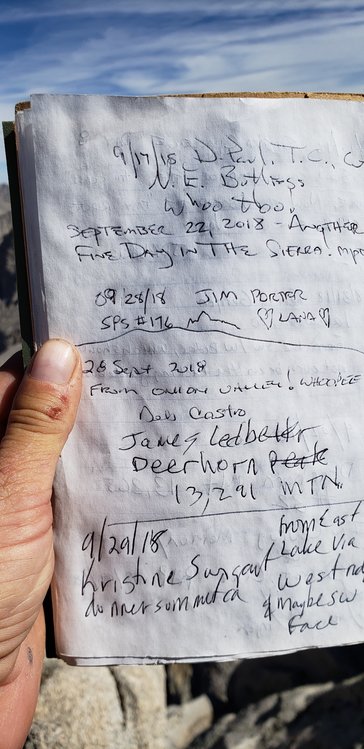 9/17/18 D. Paul, T.C.,
N. E. Buttress
whoo Hoo!
SEPTEMBER 22, 2018 - ANOTHER
FINE DAY IN THE SIERRA.
09/28/18 JIM PORTER
SPS #176 ♡LANA♡
28 Sept 2018
FROM ONION VALLEY! WHOOPEE
Deb Castro
James Ledbetter
Deerhorn Peak
13,291 MTN.
9/29/18
Kristine
donnersummit ca
from East
Lake Via
West
& maybe SW
Face